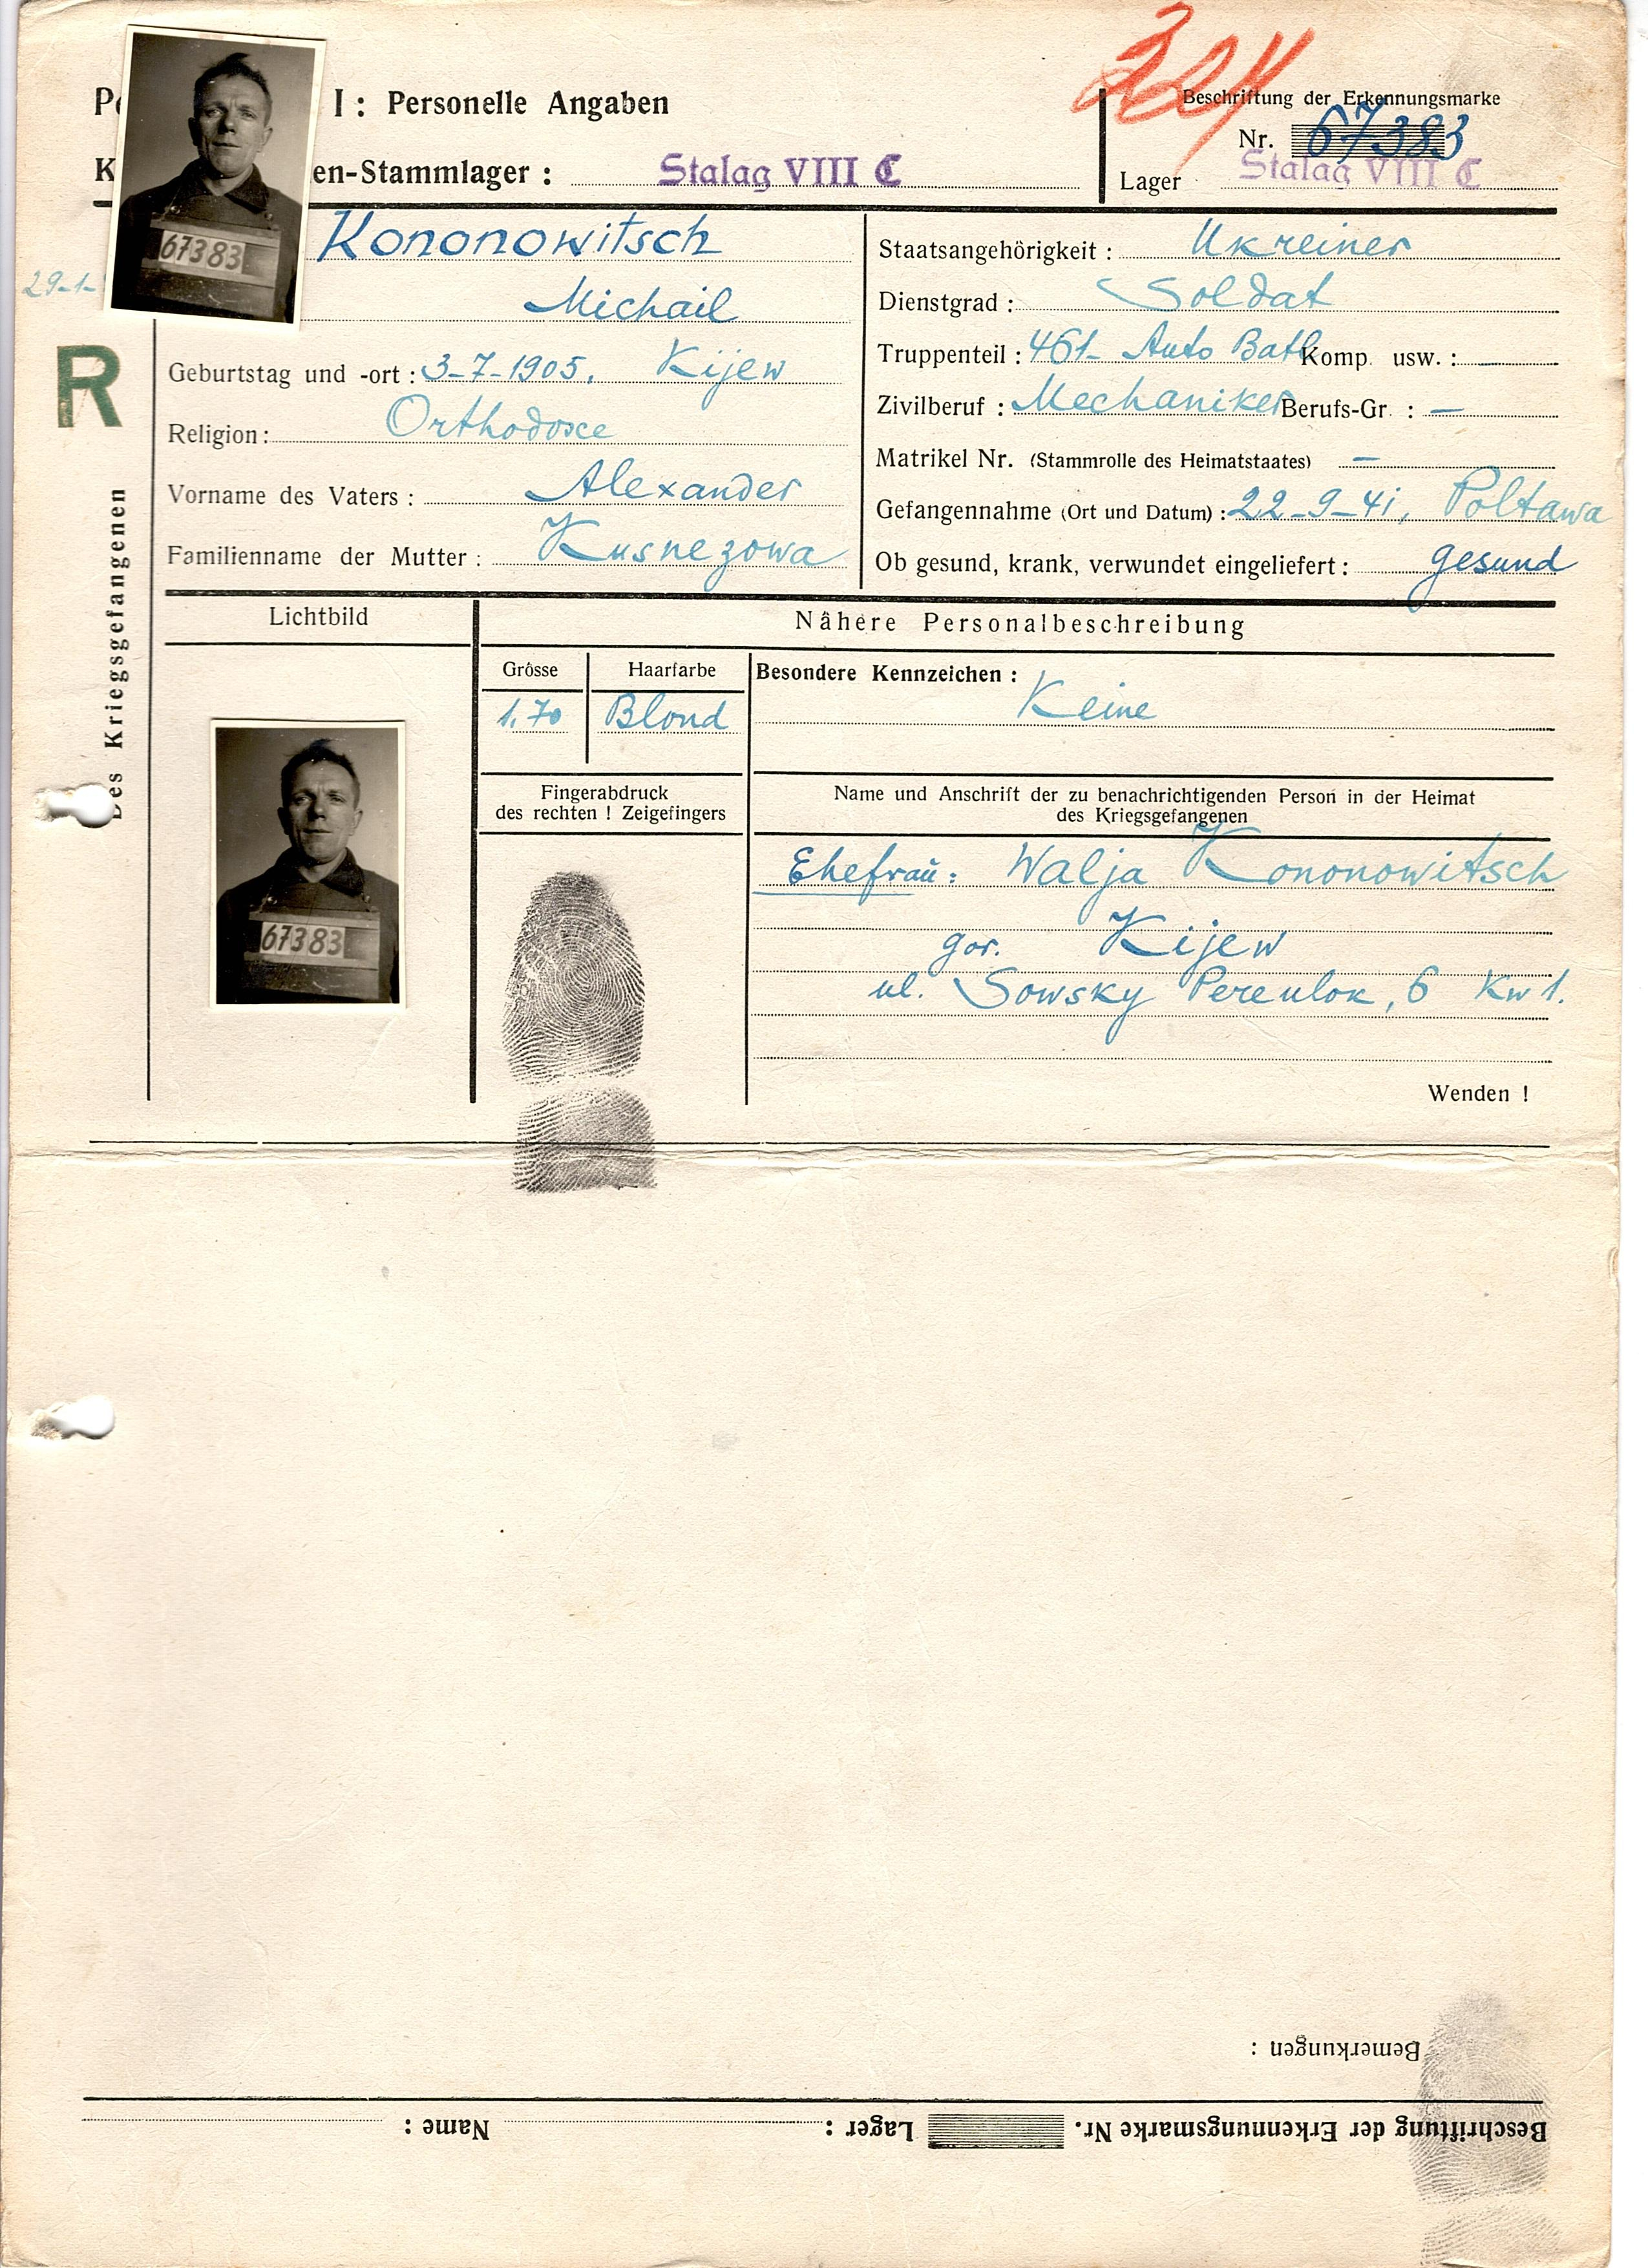 I: Personelle Angaben
224
Beschriftung der Erkennungsmarke
Nr. 67383
en-Stammlager: Stalag VIII C
Lager Stalag VIII C
67383
29-1-
R
Des Kriegsgefangenen
Kononowitsch
Michail
Geburtstag und -ort: 3-7-1905, Kijew
Religion: Orthodoxe
Vorname des Vaters: Alexander
Familienname der Mutter: Kusnezowa
Staatsangehörigkeit: Ukreiner
Dienstgrad: Soldat
Truppenteil: 461- Auto Batl Komp. usw.: —
Zivilberuf: Mechaniker Berufs-Gr.: —
Matrikel Nr. (Stammrolle des Heimatstaates) —
Gefangennahme (Ort und Datum): 22-9-41, Poltawa
Ob gesund, krank, verwundet eingeliefert: gesund
Lichtbild
67383
Nähere Personalbeschreibung
Grösse
1,70
Haarfarbe
Blond
Besondere Kennzeichen:
Keine
Fingerabdruck
des rechten ! Zeigefingers
Name und Anschrift der zu benachrichtigenden Person in der Heimat
des Kriegsgefangenen
Ehefrau: Walja Kononowitsch
gor. Kijew
ul. Sowsky Pereulok, 6 Kw 1.
Wenden !
Bemerkungen:
Beschriftung der Erkennungsmarke Nr. Lager: Name: